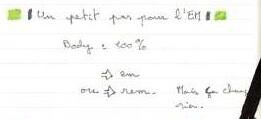 Un petit pas pour l'EM
Body : 100%
⇒ em
ou ⇒ rem. Mais ça change
rien.